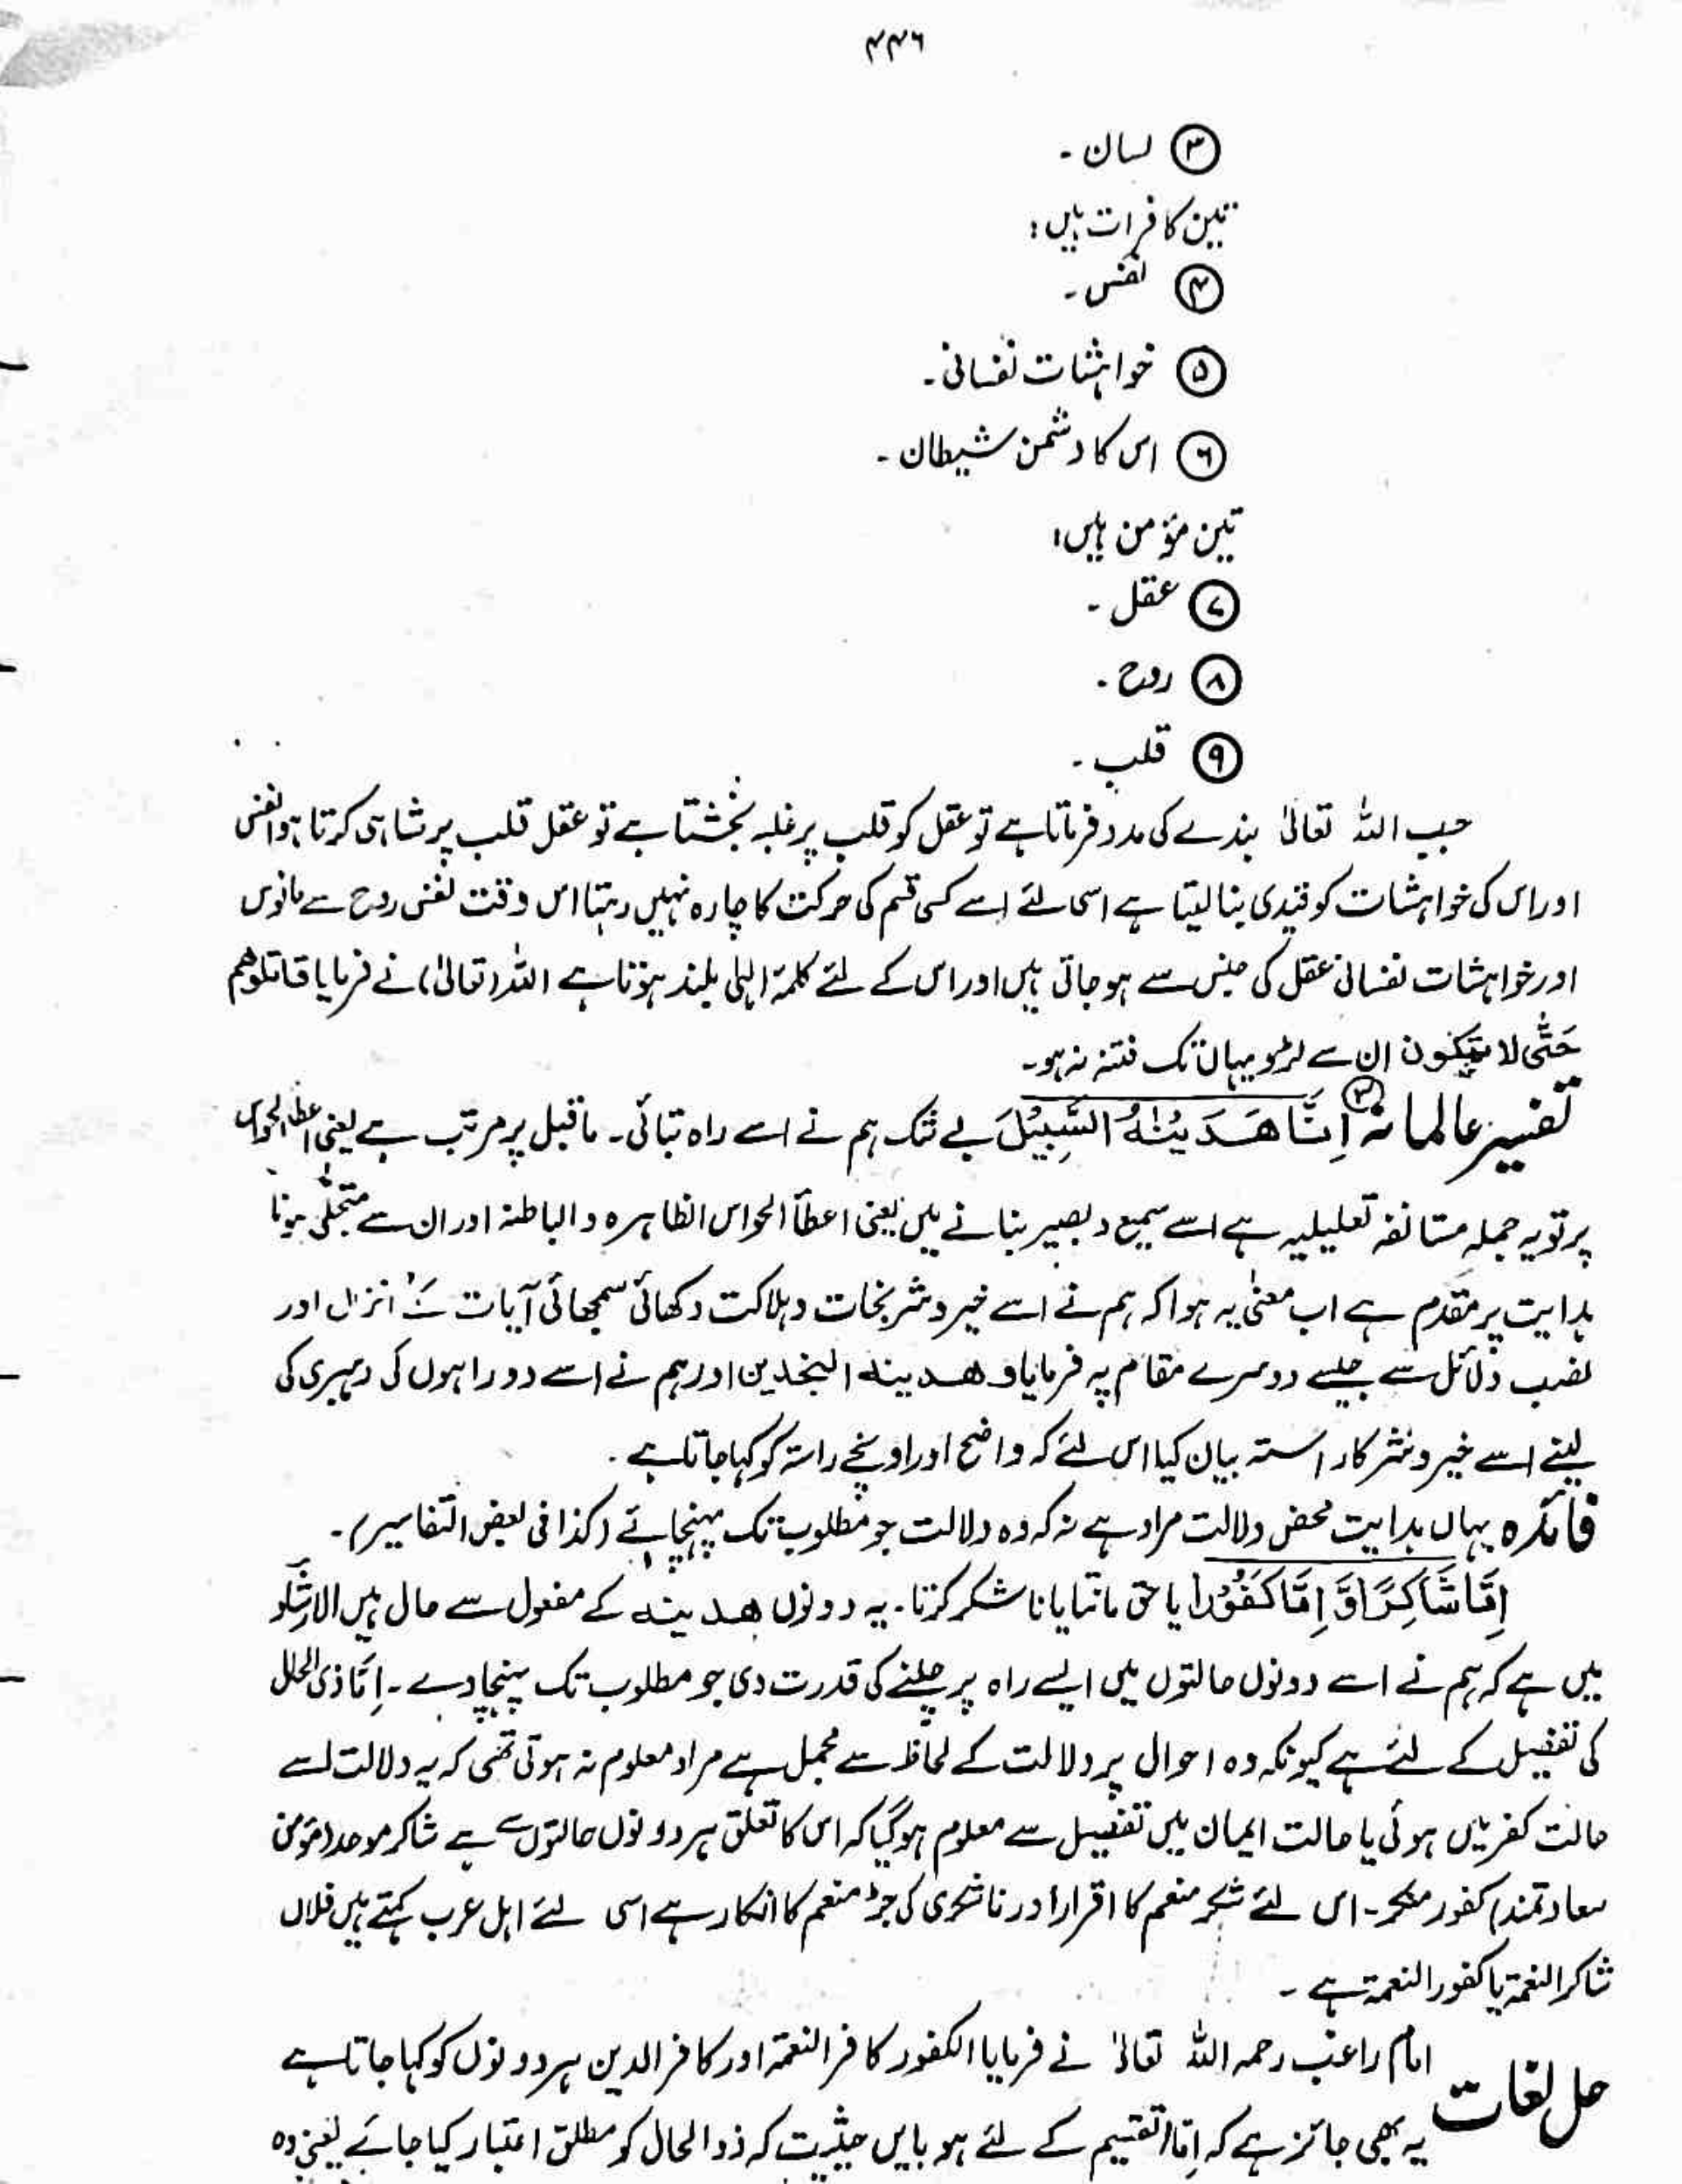 ۴۴۶
③ لسان ۔
تین کافرات ہیں:
④ نفس ۔
⑤ خواہشات نفسانی ۔
⑥ اس کا دشمن شیطان ۔
تین مؤمن ہیں:
⑦ عقل ۔
⑧ روح ۔
⑨ قلب ۔
جب اللہ تعالیٰ بندے کی مدد فرماتا ہے تو عقل کو قلب پر غلبہ بخشتا ہے تو عقل قلب پر شاہی کرتا ہوا نفس
اور اس کی خواہشات کو قیدی بنا لیتا ہے اسی لئے اسے کسی قسم کی حرکت کا چارہ نہیں رہتا اس وقت نفس روح سے مانوس
اور خواہشات نفسانی عقل کی جنس سے ہو جاتی ہیں اور اس کے لئے کلمۂ الٰہی بلند ہوتا ہے اللہ (تعالیٰ) نے فرمایا قاتلوھم
حَتّٰی لا تکون ان سے لڑو یہاں تک فتنہ نہ ہو۔
تفسیر عالمانہ ③ اِنَّا هَدَیْنٰهُ السَّبِیْلَ بے شک ہم نے اسے راہ بتائی ۔ ماقبل پر مرتب ہے یعنی اعطا الحواس
پر تو یہ جملہ مستانفہ تعلیلیہ ہے اسے سمیع و بصیر بنانے میں یعنی اعطآ الحواس الظاہرہ و الباطنہ اور ان سے متجلّی ہونا
ہدایت پر مقدم ہے اب معنیٰ یہ ہوا کہ ہم نے اسے خیر و شر نجات و ہلاکت دکھائی سمجھائی آیات کے انزال اور
نصب دلائل سے جیسے دوسرے مقام پہ فرمایا و ھدینہ النجدین اور ہم نے اسے دو راہوں کی رہبری کی
یعنے اسے خیر و شر کا راستہ بیان کیا اس لئے کہ واضح اور اونچے راستہ کو کہا جاتا ہے ۔
فائدہ یہاں ہدایت محض دلالت مراد ہے نہ کہ وہ دلالت جو مطلوب تک پہنچائے (کذا فی بعض التفاسیر)۔
اِمَّا شَاكِرًا وَّ اِمَّا كَفُوْرًا یا حق مانتا یا ناشکر کرتا ۔ یہ دونوں ھدینہ کے مفعول سے حال ہیں الارشاد
میں ہے کہ ہم نے اسے دونوں حالتوں میں ایسے راہ پر چلنے کی قدرت دی جو مطلوب تک پہنچا دے ۔ اِمَّا ذی الحال
کی تفصیل کے لئے ہے کیونکہ وہ احوال پر دلالت کے لحاظ سے مجمل ہے مراد معلوم نہ ہوتی تھی کہ یہ دلالت اسے
حالت کفر میں ہوئی یا حالت ایمان میں تفصیل سے معلوم ہو گیا کہ اس کا تعلق ہر دونوں حالتوں سے ہے شاکر موحد (مؤمن
سعادتمند) کفور منکر ۔ اس لئے شکر منعم کا اقرار اور ناشکری کی جڑ منعم کا انکار ہے اسی لئے اہل عرب کہتے ہیں فلاں
شاکر النعمۃ یا کفور النعمۃ ہے ۔
حل لغات امام راغب رحمہ اللہ تعالیٰ نے فرمایا الکفور کافر النعمۃ اور کافر الدین ہر دونوں کو کہا جاتا ہے
یہ بھی جائز ہے کہ اِمَّا تقسیم کے لئے ہو بایں حیثیت کہ ذوالحال کو مطلق اعتبار کیا جائے یعنی وہ